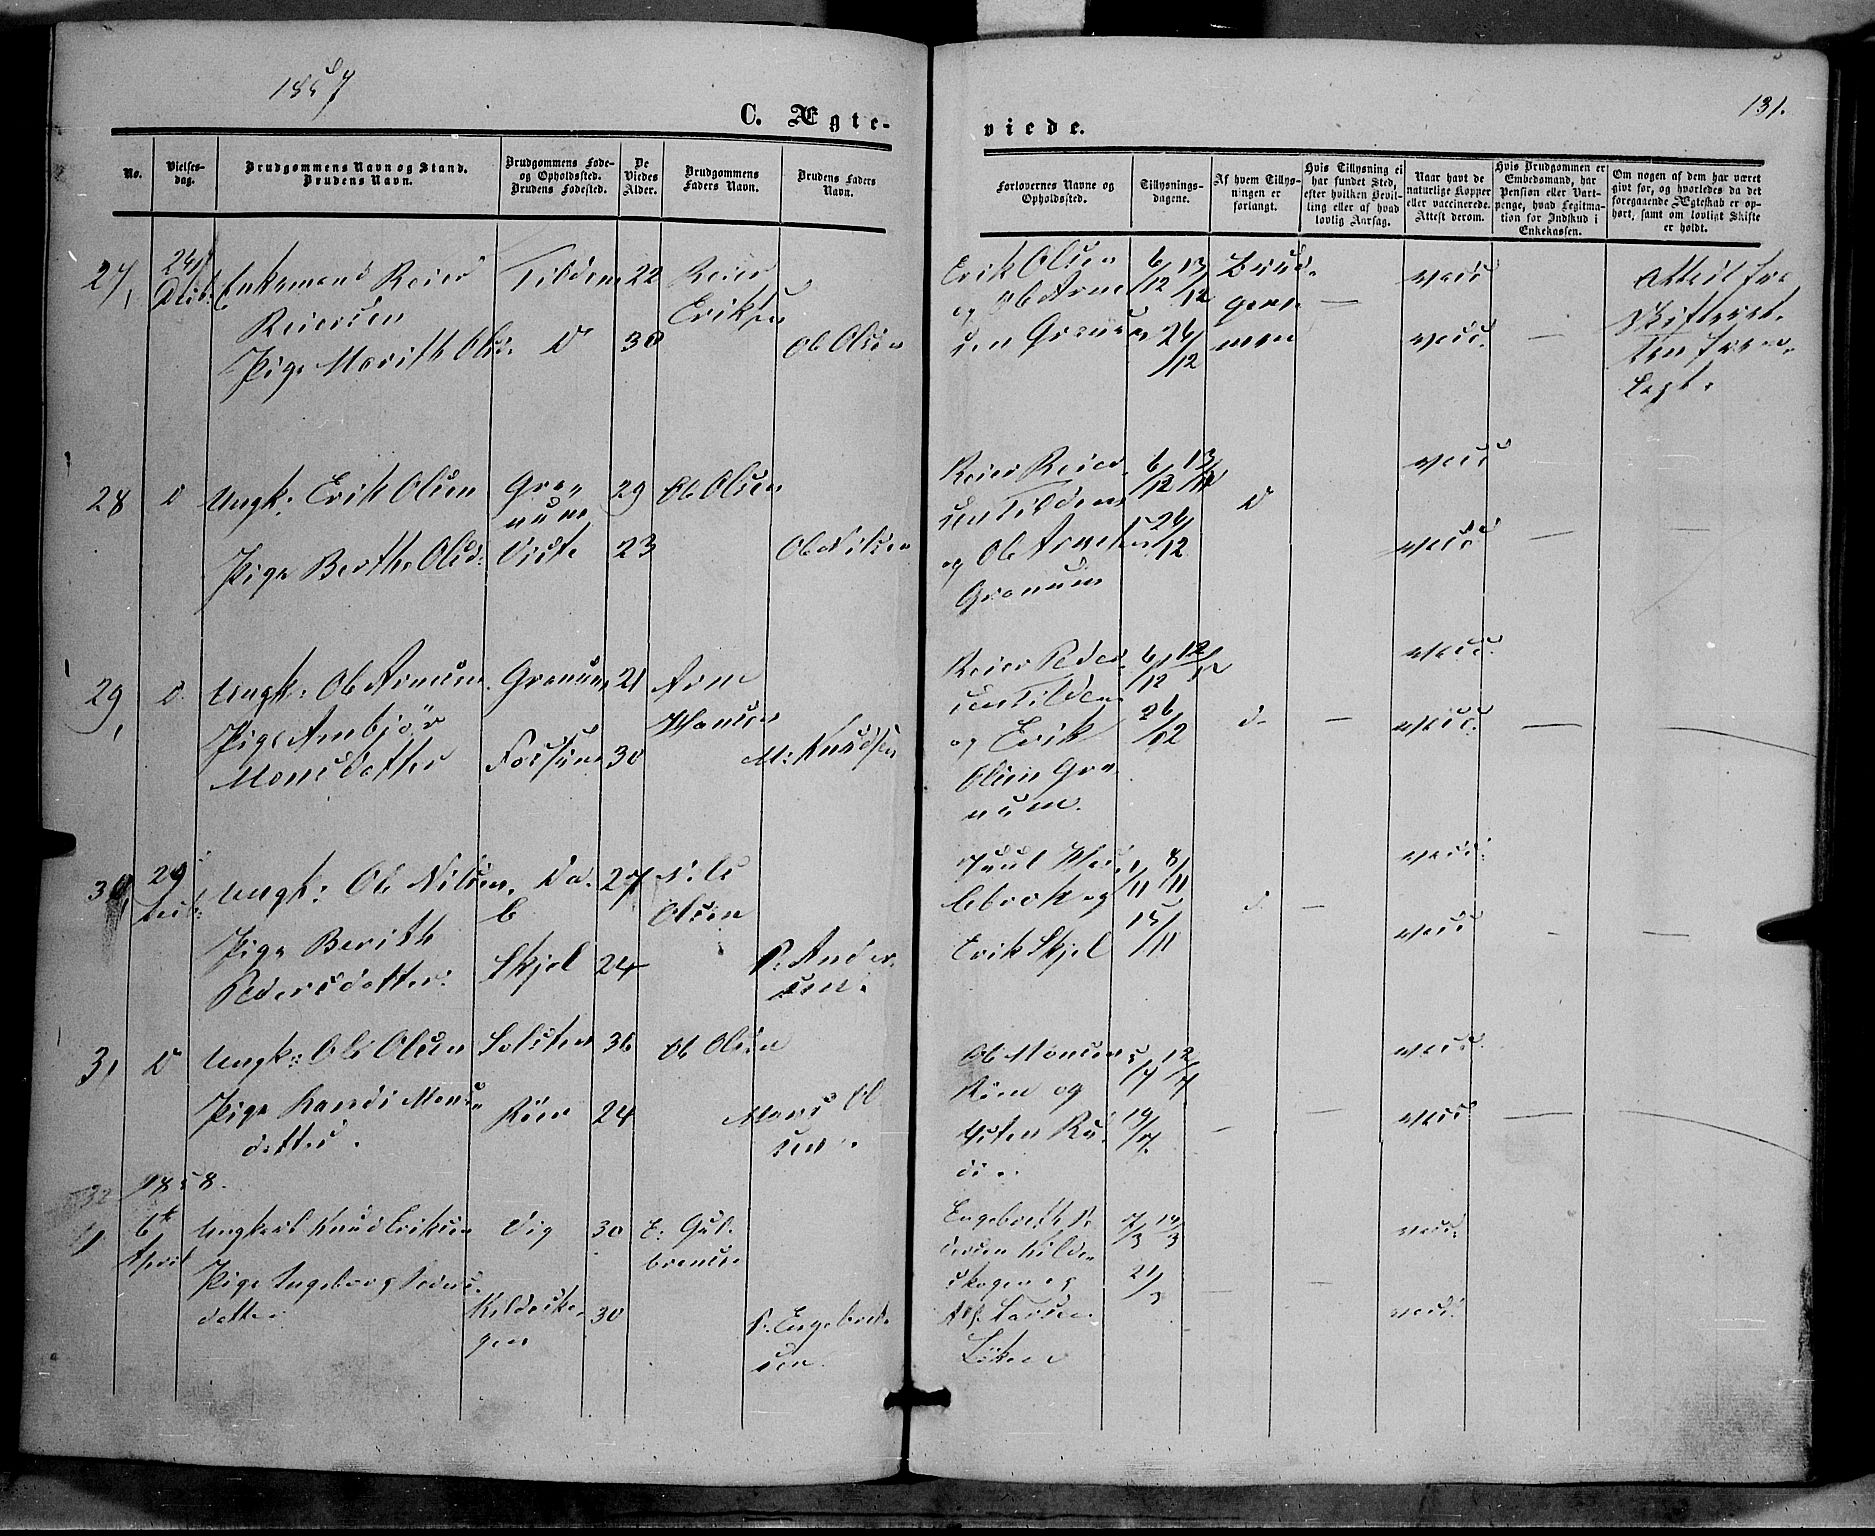 1857
C. Ægte-
viede.
131.
No.
Vielses-
dag.
Brudgommens Navn og Stand.
Brudens Navn.
Brudgommens Føde-
og Opholdssted.
Brudens Fødested.
De
Viedes
Alder.
Brudgommens
Faders Navn.
Brudens Faders
Navn.
Forlovernes Navne og
Opholdssted.
Tillysnings-
dagene.
Af hvem Tillys-
ningen er
forlangt.
Hvis Tillysning ei
har fundet Sted,
efter hvilken Bevil-
ling eller af hvad
lovlig Aarsag.
Naar havt de
naturlige Kopper
eller vaccinerede.
Attest derom.
Hvis Brudgommen er
Embedsmand, har
Pension eller Vart-
penge, hvad Legitima-
tion for Indskud i
Enkekassen.
Om nogen af dem har været
givt før, og hvorledes da det
foregaaende Ægteskab er op-
hørt, samt om lovligt Skifte
er holdt.
27,
Enkemand Reier
Reiersen
Pige Marith Ols:
Tilden 22
D 30
Reier
Eriksen
Ole Olsen
Erik Olsen
og Ole Arne
sen Granum
6/12 13/12
26/12
Brud
gom
men
vacc
vacc.
Attest fra
Skifteret
ten frem
lagt.
28
D
Ungk: Erik Olsen
Pige Berthe Olsd:
Gra
num
Viste
29
23
Ole Olsen
Ole Nilsen
Reier Reier
sen Tilden
og Ole Arnesen
Granum
6/12 13/12
26/12
D
vacc
vacc
29,
D.
Ungk: Ole Arnesen
Pige Anbjør
Monsdatter
Granum 21
Fossum 30
Arne
Hansen
M: Knudsen
Reier Peder
sen Tilden
og Erik
Olsen Gra
num.
6/12
26/12
d.
vacc.
vacc.
30,
29
Ungk: Ole Nilsen,
Pige Berith
Pedersdatter.
Do. 27
Skjel 24
Nils
Olsen
P: Ander
sen.
og
Erik Skjel
1/11 8/11
15/11
d.
vacc.
vacc
31
D
Ungk: Ole Olsen
Pige Randi Mons
datter.
36
24
Ole Olsen
Mons Ol
sen.
Ole Monsen
og
Ru
di.
5/7 12/7
19/7.
vacc
vacc
32 1858.
1
6t
April
Ungkarl Knud Eriksen
Pige Ingeborg Peders
datter
Vig
Kildesko
gen
30
30
E: Gul
bransen
P: Engebret
sen.
Engebreth Pe
dersen Kilde
skogen og
Løken
7/3 14/3
21/3
vacc.
vacc.